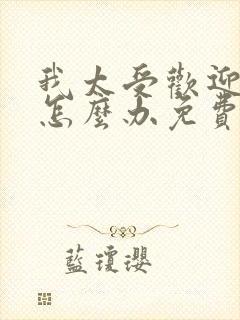 我太受歡迎
怎麼办免費
藍瓊瓔